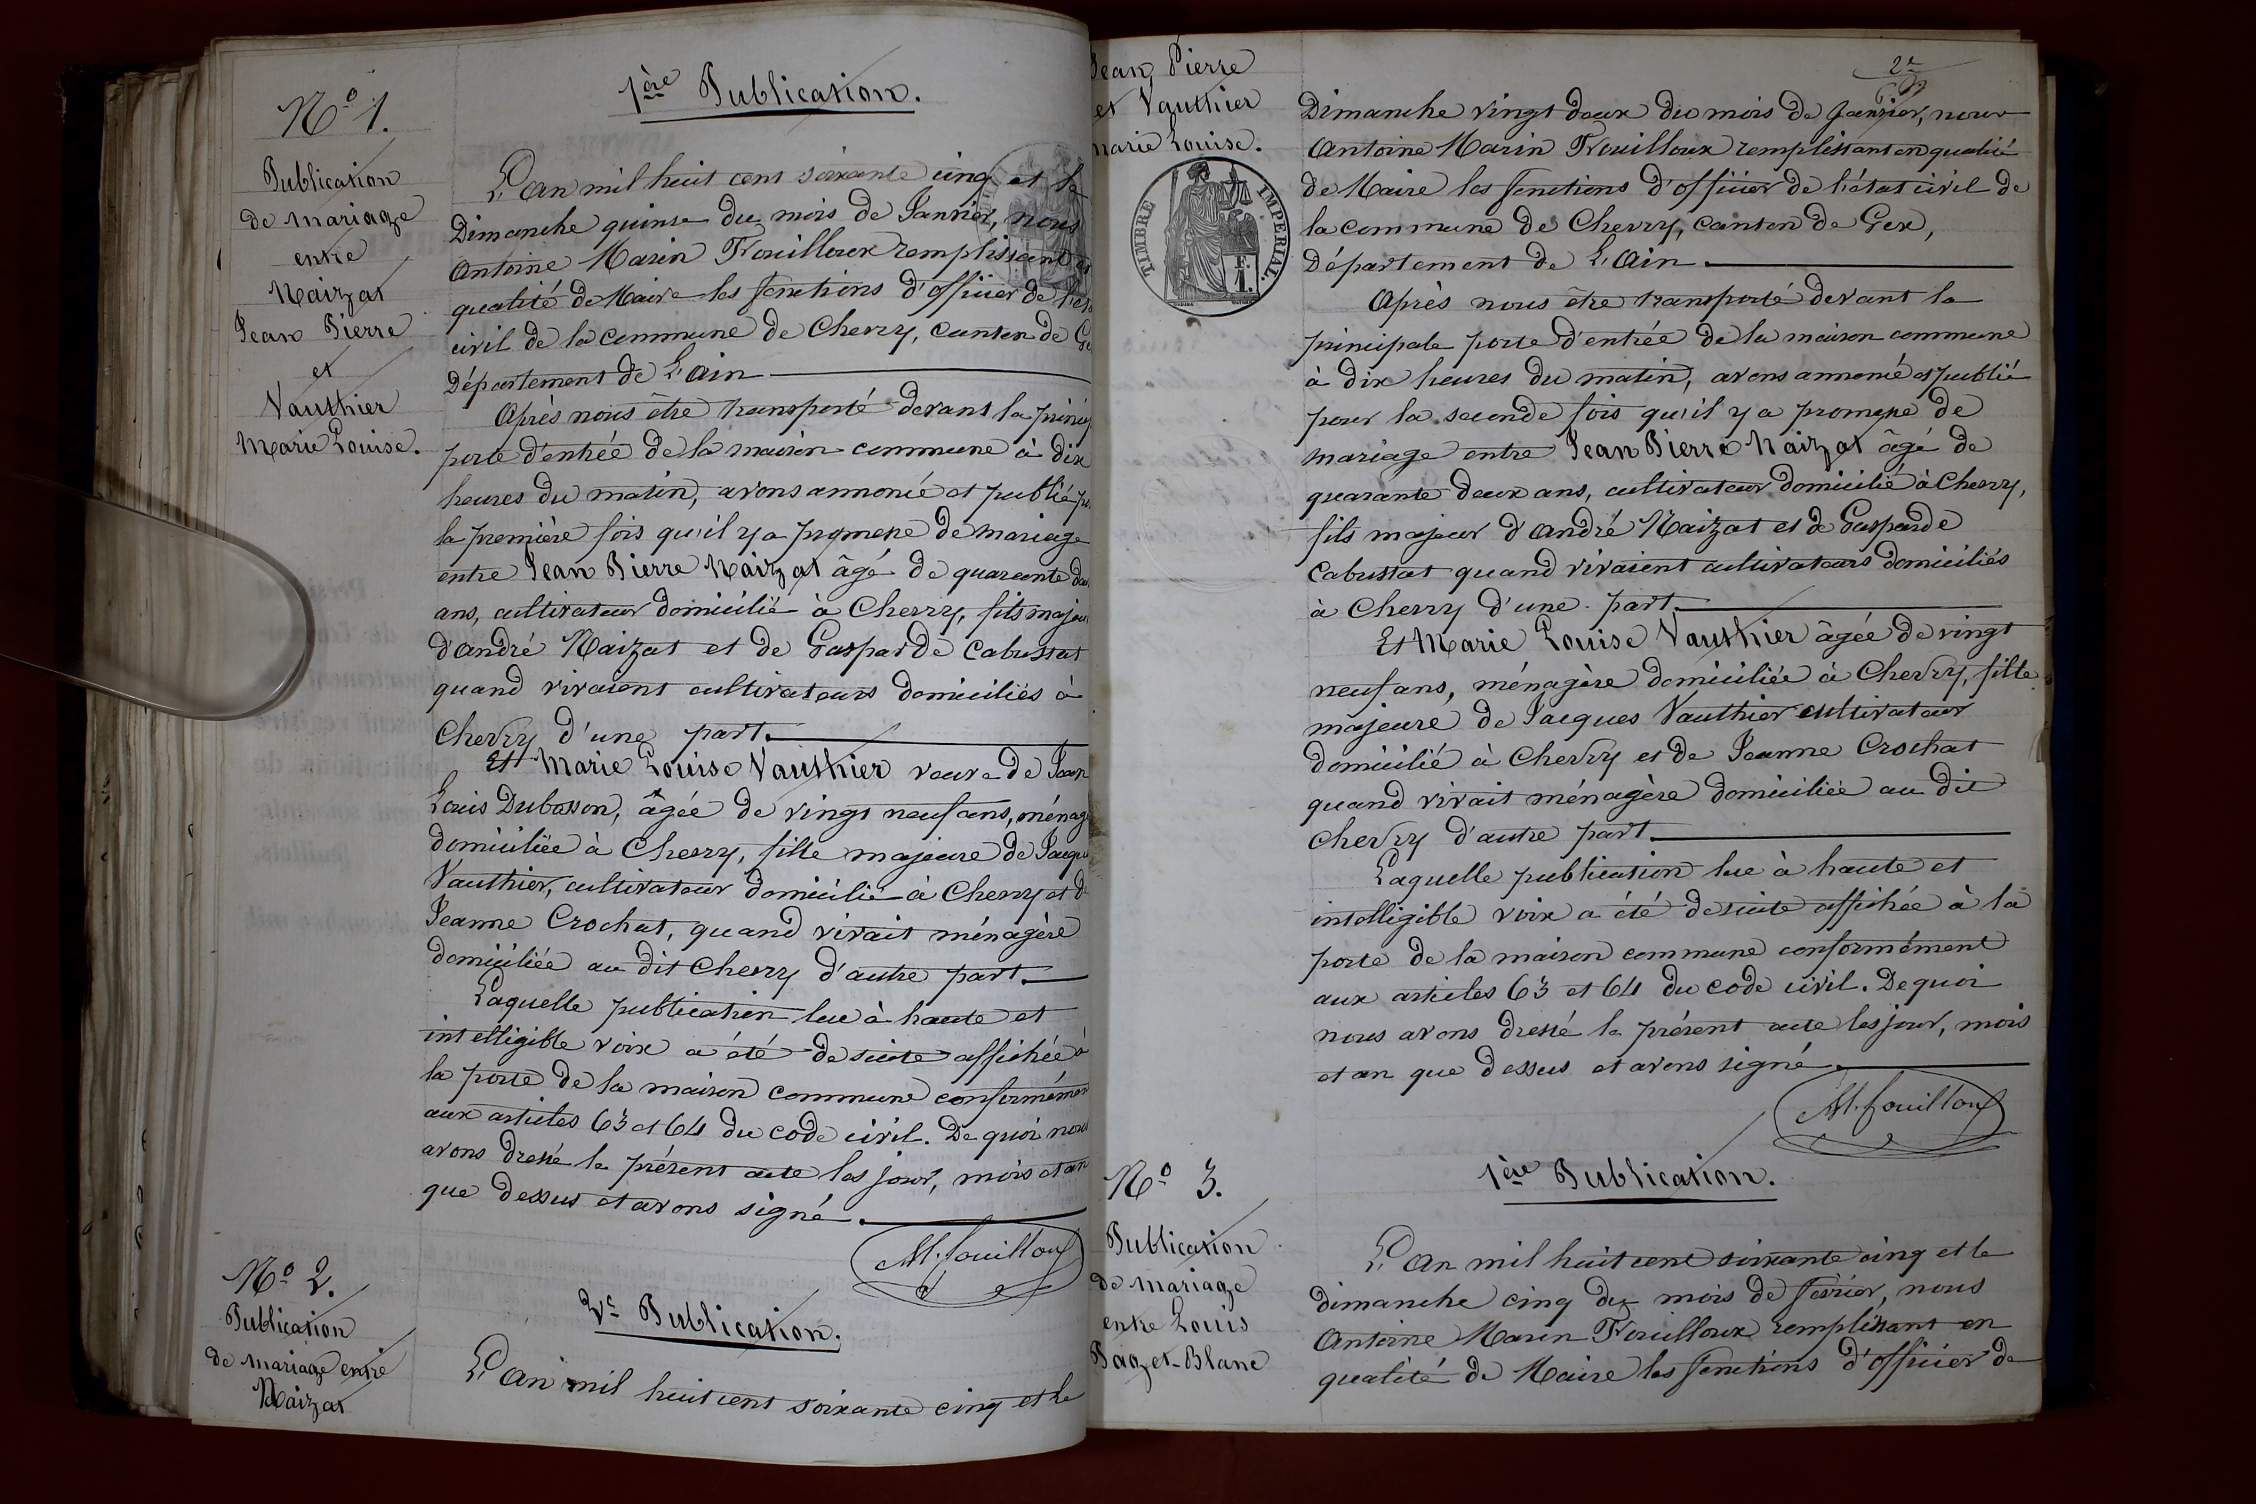 Nº 1.
Publication
de mariage
entre
Maizat
Jean Pierre
et
Vauthier
Marie Louise.
1ère Publication.
L'an mil huit cent soixante cinq et le
Dimanche quinze du mois de Janvier, nous
Antoine Marin Fouilloux remplissant en
qualité de Maire les fonctions d'officier de l'éta
civil de la commune de Chevry, canton de Ge
Département de L'ain
Après nous être transporté devant la princip
porte d'entrée de la maison commune à dix
heures du matin, avons annoncé et publié po
la première fois qu'il y a promesse de mariage
entre Jean Pierre Maizat âgé de quarante deu
ans, cultivateur domicilié à Chevry, fils majeur
d'andré Maizat et de Gasparde Cabustat
quand vivaient cultivateurs domiciliés à
Chevry d'une part.
Et Marie Louise Vauthier veuve de Jean
Louis Dubosson, âgée de vingt neuf ans, ménag
domiciliée à Chevry, fille majeure de Jacque
Vauthier, cultivateur domicilié à Chevry et de
Jeanne Crochat, quand vivait ménagère
domiciliée au dit Chevry d'autre part.
Laquelle publication lue à haute et
intelligible voix a été de suite affichée à
la porte de la maison commune conformément
aux articles 63 et 64 du code civil. De quoi nous
avons dressé le présent acte les jour, mois et an
que dessus et avons signé.
AM. fouilloux
Nº 2.
Publication
de mariage entre
Maizat
2e Publication.
L'an mil huit cent soixante cinq et le
Jean Pierre
et Vauthier
Marie Louise.
TIMBRE IMPERIAL.
1 F.
2e
Dimanche vingt deux du mois de Janvier, nous
Antoine Marin Fouilloux remplissant en qualité
de Maire les fonctions d'officier de l'état civil de
la commune de Chevry, canton de Gex,
Département de L'Ain.
Après nous être transporté devant la
principale porte d'entrée de la maison commune
à dix heures du matin, avons annoncé et publié
pour la seconde fois qu'il y a promesse de
mariage entre Jean Pierre Maizat âgé de
quarante deux ans, cultivateur domicilié à Chevry,
fils majeur d'andré Maizat et de Gasparde
Cabustat quand vivaient cultivateurs domiciliés
à Chevry d'une part.
Et Marie Louise Vauthier âgée de vingt
neuf ans, ménagère domiciliée à Chevry, fille
majeure de Jacques Vauthier cultivateur
domicilié à Chevry et de Jeanne Crochat
quand vivait ménagère domiciliée au dit
Chevry d'autre part.
Laquelle publication lue à haute et
intelligible voix a été de suite affichée à la
porte de la maison commune conformément
aux articles 63 et 64 du code civil. De quoi
nous avons dressé le présent acte les jour, mois
et an que dessus et avons signé.
AM. fouilloux
Nº 3.
Publication
de mariage
entre Louis
Pagzet-Blanc
1ère Publication.
L'an mil huit cent soixante cinq et le
dimanche cinq du mois de février, nous
Antoine Marin Fouilloux remplissant en
qualité de Maire les fonctions d'officier de